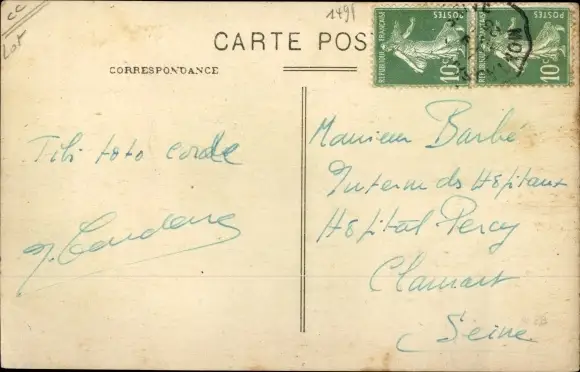 cc
Lot
1491
CARTE POST
CORRESPONDANCE
REPUBLIQUE FRANÇAISE
POSTES
10c
REPUBLIQUE FRANÇAISE
POSTES
10c
Tibi toto corde
Monsieur Barbé
Interne des Hôpitaux
Hôpital Percy
Clamart
Seine